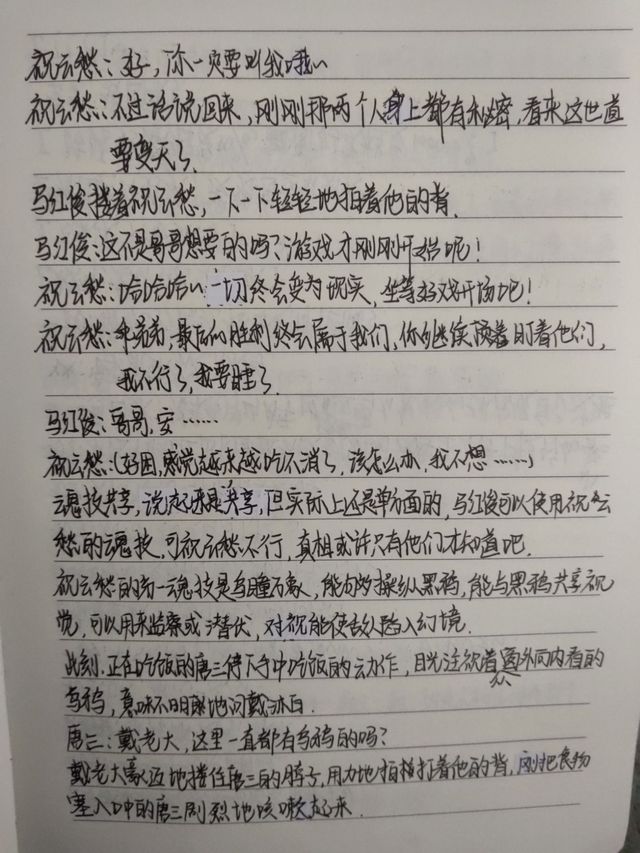 祝云愁:好,你一定要叫我哦~
祝云愁:不过话说回来,刚刚那两个人身上都有秘密,看来这世道
要变天了.
马红俊搂着祝云愁,一下一下轻轻地拍着他的背.
马红俊:这不是哥哥想要的吗?游戏才刚刚开始呢!
祝云愁:哈哈哈~一切终会变为现实,坐等好戏开场吧!
祝云愁:乖弟弟,最后的胜利终会属于我们,你继续陪着盯着他们,
我不行了,我要睡了.
马红俊:哥哥,安……
祝云愁:(好困,感觉越来越吃不消了,该怎么办,我不想……)
魂技共享,说起来是共享,但实际上还是单方面的,马红俊可以使用祝云
愁的魂技,可祝云愁不行,真相或许只有他们才知道吧.
祝云愁的第一魂技是乌瞳万象,能够操纵黑鸦,能与黑鸦共享视
觉,可以用来监察或潜伏,对视能使敌人陷入幻境.
此刻.正在吃饭的唐三停下手中吃饭的动作,目光注视着窗外向内看的
乌鸦,意味不明地问戴沐白.
唐三:戴老大,这里一直都有乌鸦的吗?
戴老大豪迈地搂住唐三的脖子,用力地拍打着他的背,刚把食物
塞入口中的唐三剧烈地咳嗽起来.